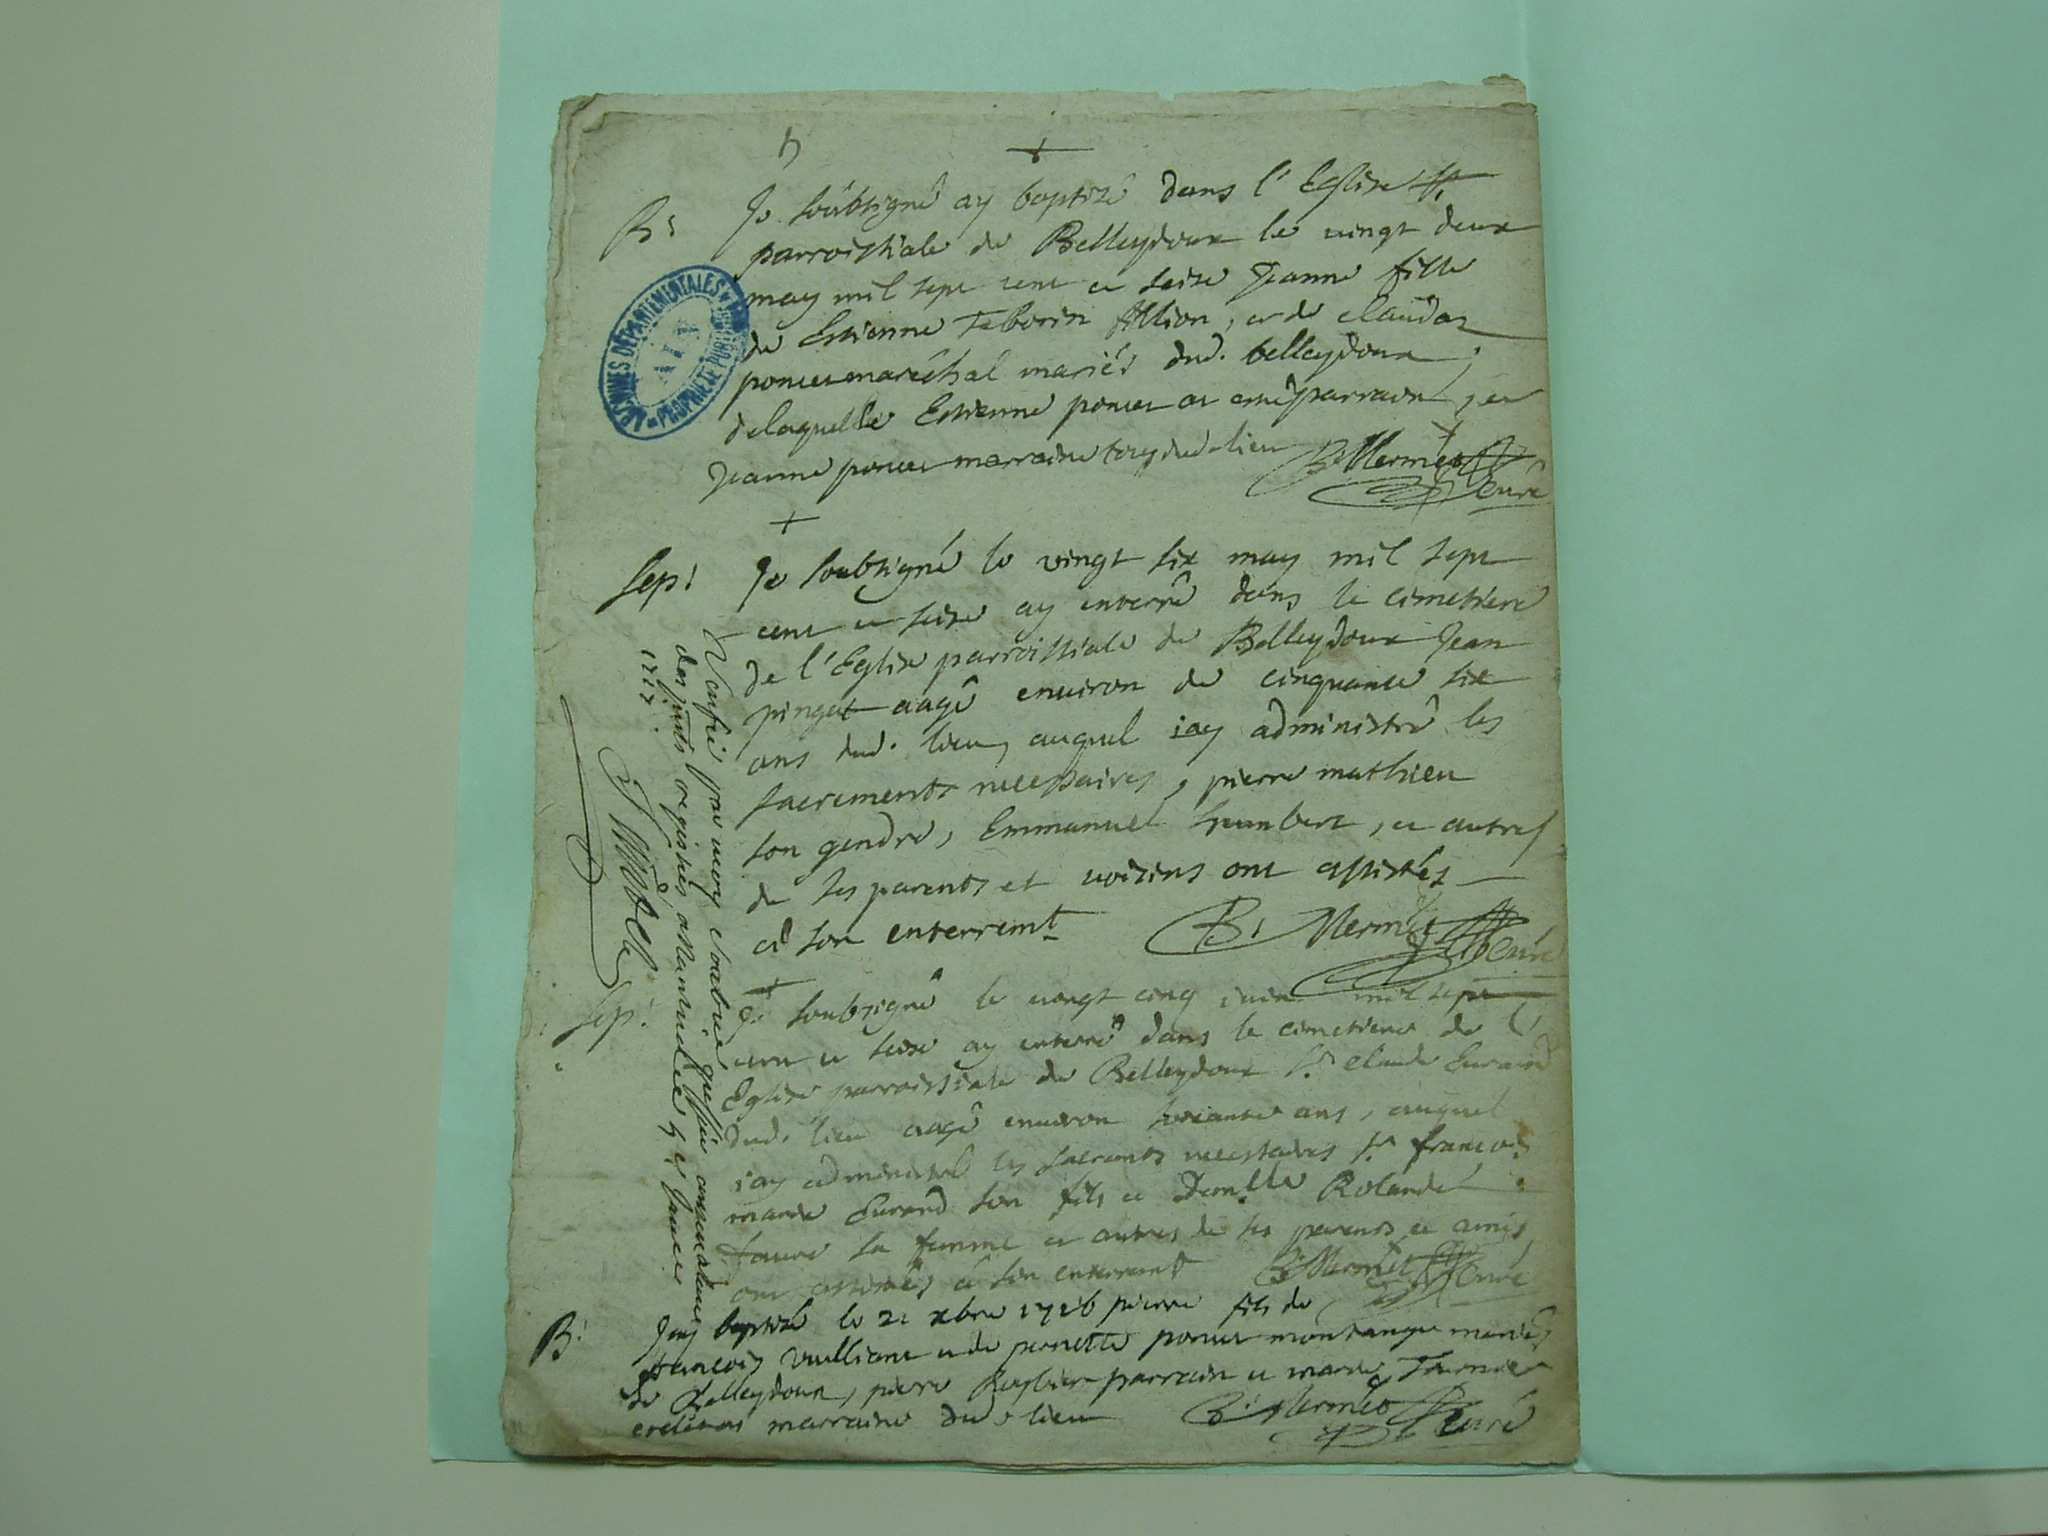 B:
Je soubsigné ay baptizé dans l'Eglise
parroissiale de Belleydoux le vingt deux
may mil sept cent et seize Jeanne fille
de Estienne Taborin Allion, et de claudaz
poncet maréchal mariés dud. belleydoux,
delaquelle Estienne poncet a esté parrain, et
Jeanne poncet marraine tous dud. lieu B: Mermet
curé
ARCHIVES DÉPARTEMENTALES
AIN
PROPRIÉTÉ PUBLIQUE
Sep:
Je soubsigné le vingt six may mil sept
cent et seize ay enterré dans le cimetiere
de l'Eglise parroissiale de Belleydoux Jean
pingat aagé environ de cinquante six
ans dud. lieu, auquel iay administré les
sacrements necessaires, pierre mathieu
son gendre, Emmanuel humbert, et autres
de ses parents et voisins ont assistés
a son enterremt B: Mermet
curé
Sep:
Je soubsigné le vingt cinq juin mil sept
cent et seize ay enterré dans le cimetiere de l'
Eglise parroissiale de Belleydoux Sr claude
dud. lieu aagé environ soixante ans, auquel
iay administré les necessaires Sr francois
marie son fils et Demlle Rolande
favre sa femme et autres de ses parents et amis
ont assistés a son enterremt B: Mermet curé
B:
Jay baptizé le 21 xbre 1716 pierre fils de
francois vuilliant et de pernette poncet montange mariés
de Belleydoux, pierre parrain et marie Tournier
marraine dud. lieu B: Mermet curé
par moy greffier conservateur
des registres a
1717.